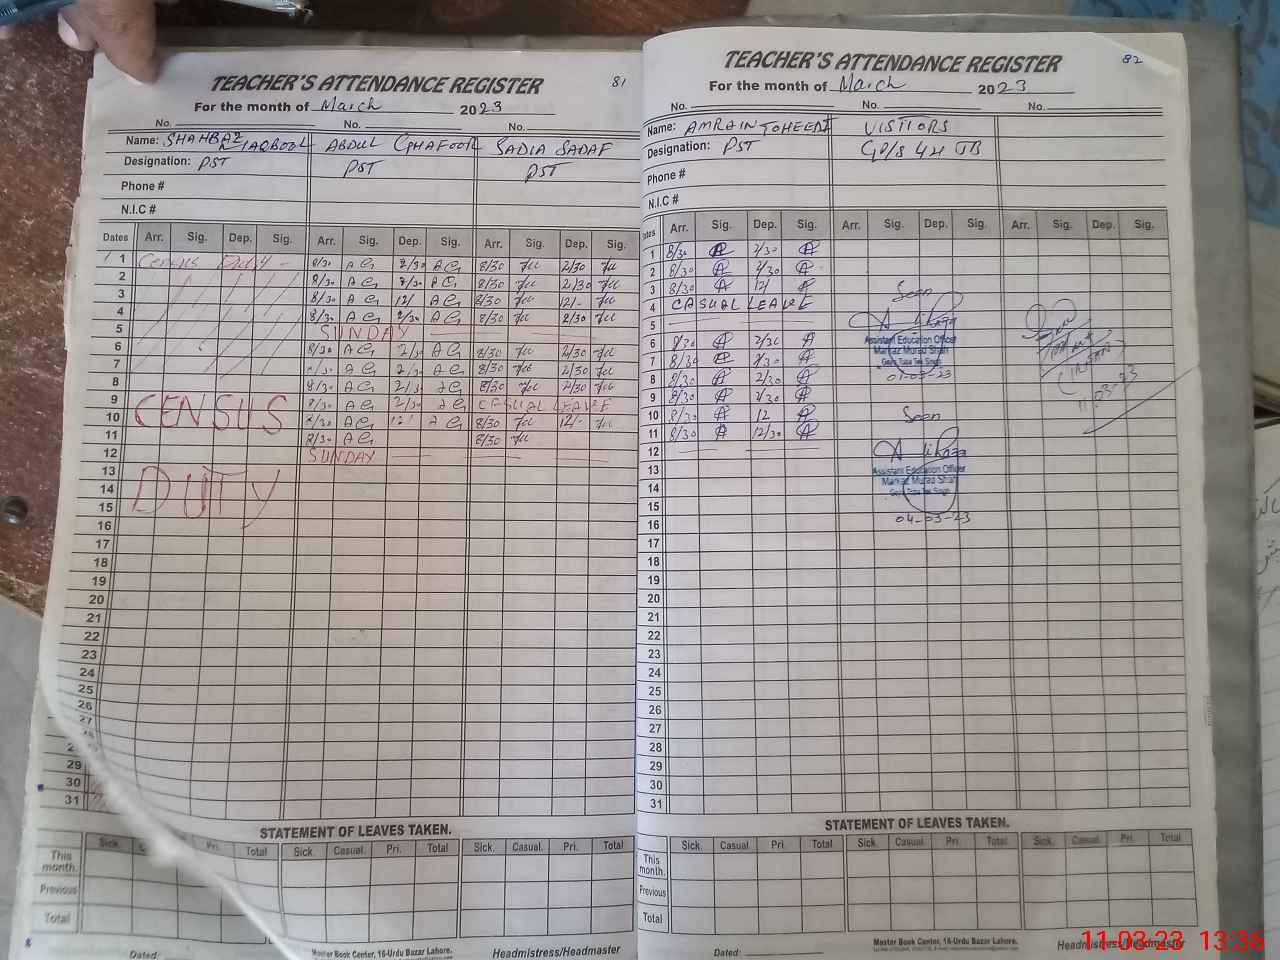 TEACHER'S ATTENDANCE REGISTER 81
For the month of March 2023
No. No. No.
Name: SHAHBAZ LIAQBOOL ABDUL GHAFOOR SADIA SADAF
Designation: PST PST PST
Phone #
N.I.C #
Dates Arr. Sig. Dep. Sig. Arr. Sig. Dep. Sig. Arr. Sig. Dep. Sig.
1 Census Duty 8/30 AG 2/30 AG 8/30 2/30
2 8/30 AG 2/30 AG 8/30 2/30
3 8/30 AG 12/ AG 8/30 12/-
4 8/30 AG 2/30 AG 8/30 2/30
5 SUNDAY
6 8/30 AG 2/30 AG 8/30 2/30
7 8/30 AG 2/30 AG 8/30 2/30
8 8/30 AG 2/30 AG 8/30 2/30
9 8/30 AG 2/30 AG CASUAL LEAVE
10 CENSUS 8/30 AG 12/ AG 8/30 12/-
11 8/30 AG 8/30
12 SUNDAY
13
14 DUTY
15
16
17
18
19
20
21
22
23
24
25
26
27
28
29
30
31
STATEMENT OF LEAVES TAKEN.
Sick. Pri. Total Sick. Casual. Pri. Total Sick. Casual. Pri. Total
This month.
Previous
Total
Master Book Center, 16-Urdu Bazar Lahore.
Dated: Headmistress/Headmaster
TEACHER'S ATTENDANCE REGISTER 82
For the month of March 2023
No. No. No.
Name: AMRAIN TOHEENT VISTIORS
Designation: PST GP/S 424 JB
Phone #
N.I.C #
Dates Arr. Sig. Dep. Sig. Arr. Sig. Dep. Sig. Arr. Sig. Dep. Sig.
1 8/30 A 2/30 A
2 8/30 A 2/30 A
3 8/30 A 12/ A Seen
4 CASUAL LEAVE
5
6 8/30 A 2/30 A Assistant Education Officer
7 8/30 A 2/30 A Markaz Murad Shah
Govt. Toba Tek Singh
8 8/30 A 2/30 A 01-03-23
9 8/30 A 2/30 A 11.03-23
10 8/30 A 12 A Seen
11 8/30 A 12/30 A
12
13 Assistant Education Officer
Markaz Murad Shah
14
15
16 04-03-23
17
18
19
20
21
22
23
24
25
26
27
28
29
30
31
STATEMENT OF LEAVES TAKEN.
Sick. Casual. Pri. Total Sick. Casual Pri. Total Sick. Casual Pri. Total
This month.
Previous
Total
Master Book Center, 16-Urdu Bazar Lahore.
Dated: Headmistress/Headmaster
11.03.23 13:36